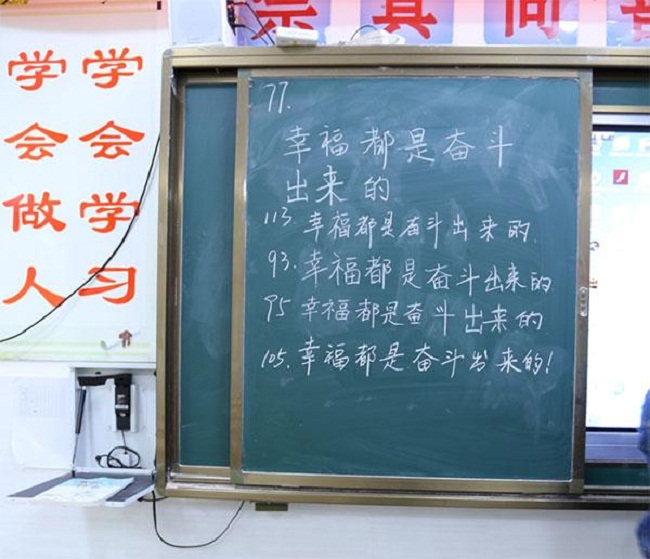 学会做人
学会学习
77.
幸福都是奋斗
出来的
113. 幸福都是奋斗出来的.
93. 幸福都是奋斗出来的
95 幸福都是奋斗出来的
105. 幸福都是奋斗出来的!